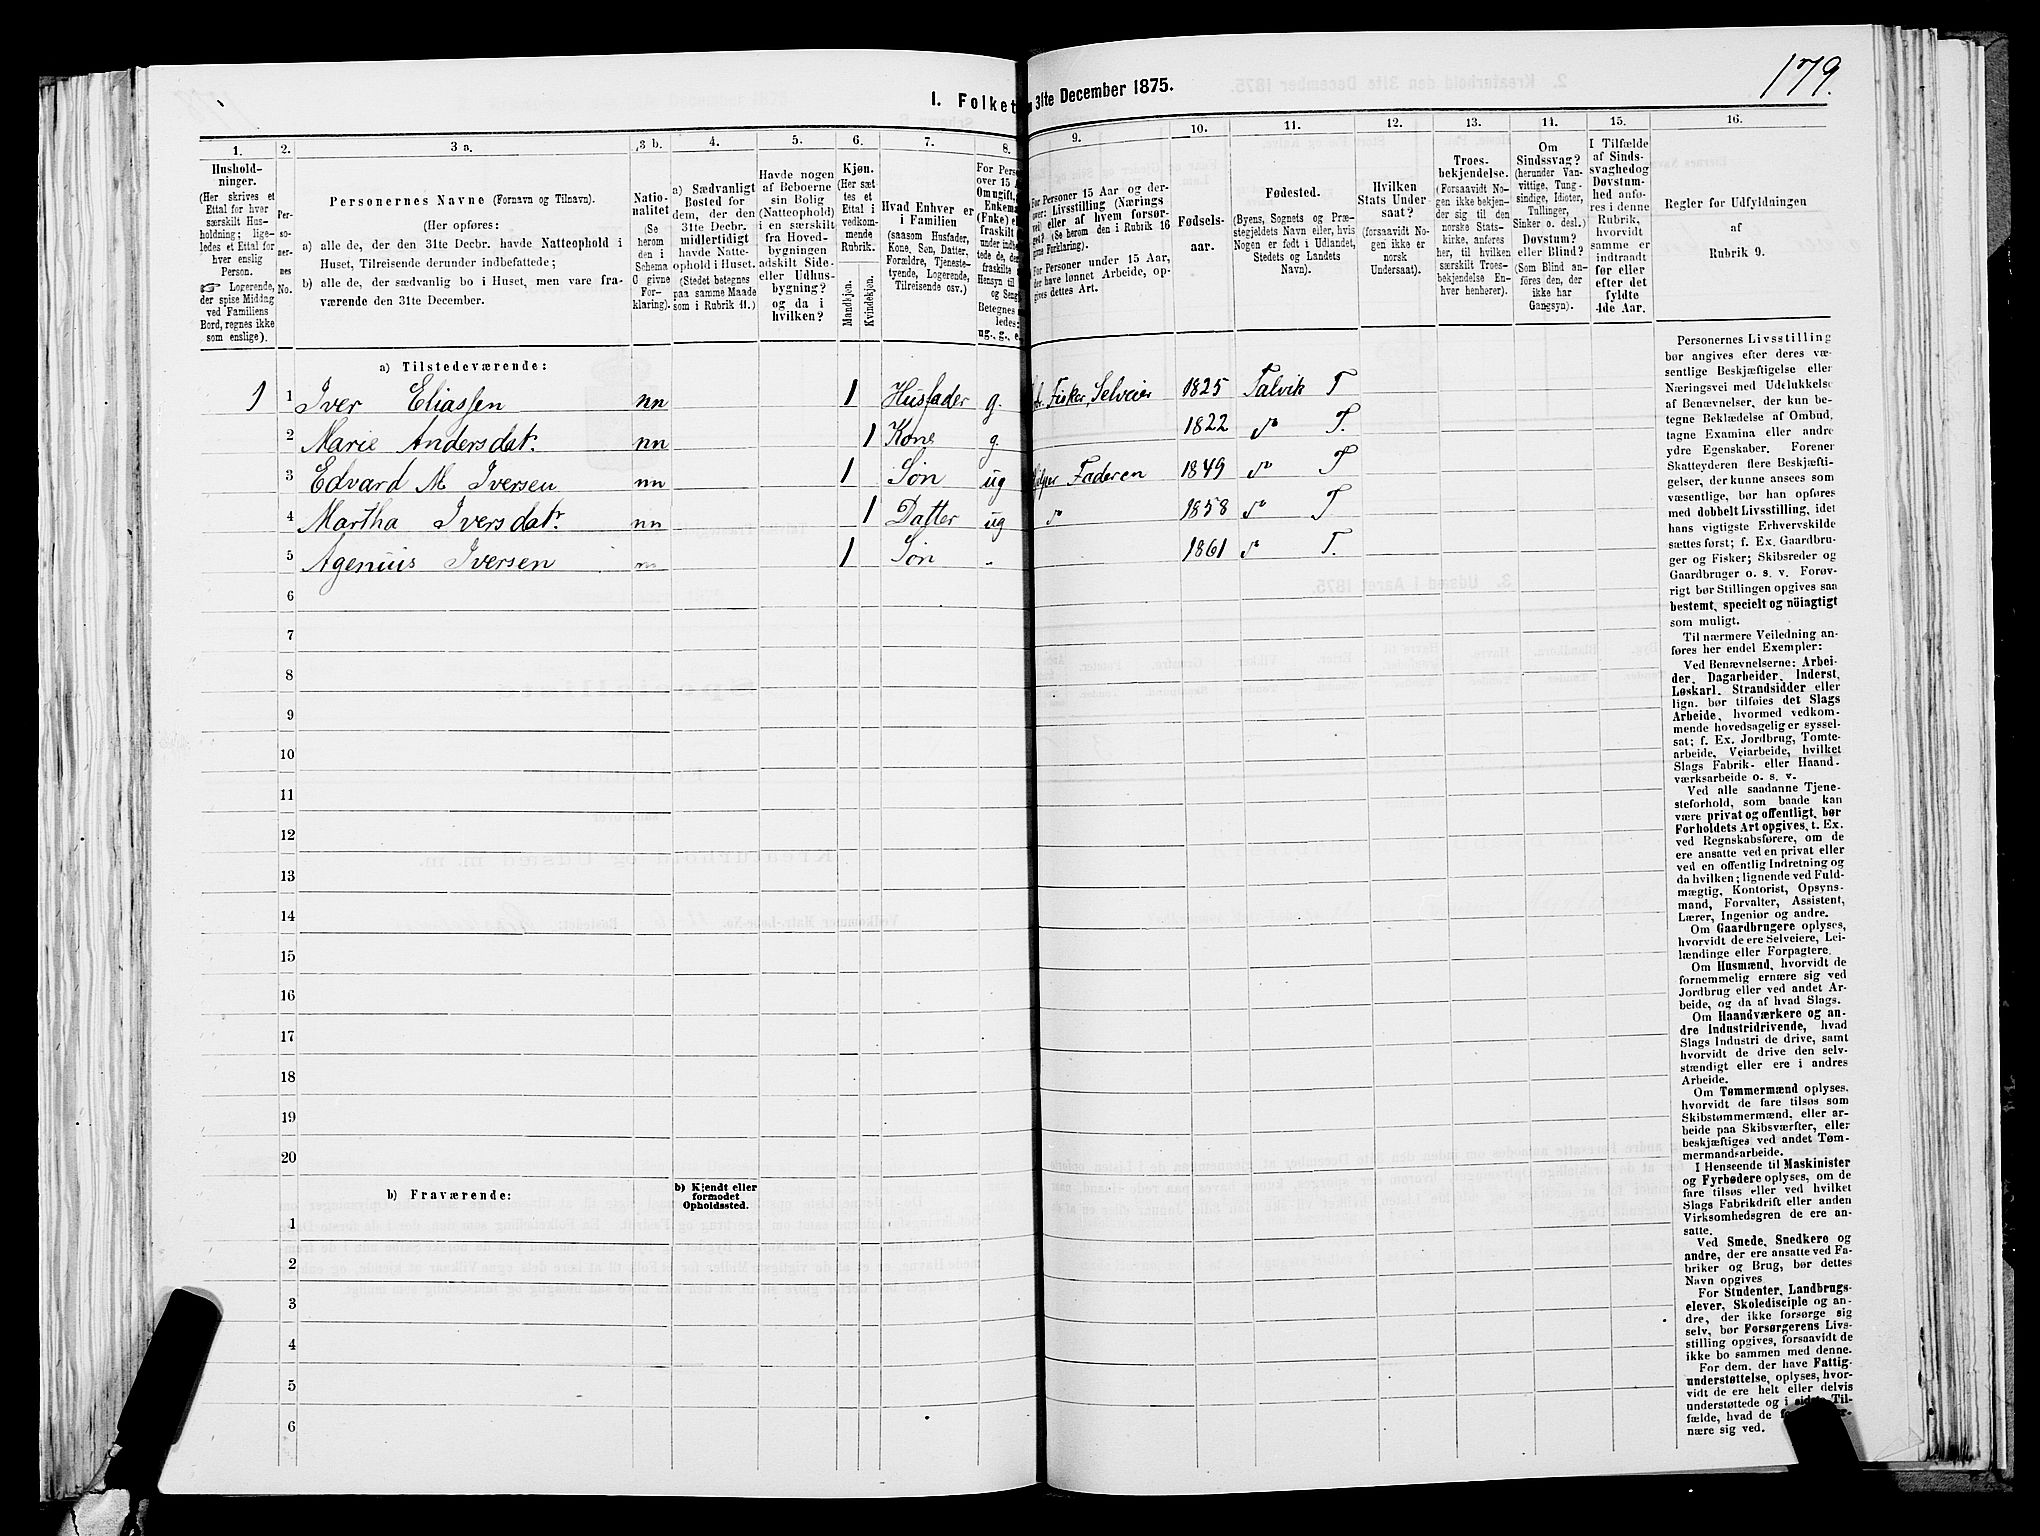 179.
I. Folket
31te December 1875.
1. 2. 3 a. 3 b. 4. 5. 6. 7. 8. 9. 10. 11. 12. 13. 14. 15. 16.
Hushold-
ninger.
(Her skrives et
Ettal for hver
særskilt Hus-
holdning; lige-
ledes et Ettal for
hver enslig
Person.
☞ Logerende,
der spise Middag
ved Familiens
Bord, regnes ikke
som enslige).
Per-
so-
ner-
nes
No.
Personernes Navne (Fornavn og Tilnavn).
(Her opføres:
a) alle de, der den 31te Decbr. havde Natteophold i
Huset, Tilreisende derunder indbefattede;
b) alle de, der sædvanlig bo i Huset, men vare fra-
værende den 31te December.
Natio-
nalitet
(Se
herom
den i
Schema
6 givne
For-
klaring).
a) Sædvanligt
Bosted for
dem, der den
31te Decbr.
midlertidigt
havde Natte-
ophold i Huset.
(Stedet betegnes
paa samme Maade
som i Rubrik 11.)
Havde nogen
af Beboerne
sin Bolig
(Natteophold)
i en særskilt
fra Hoved-
bygningen
adskilt Side-
eller Udhus-
bygning?
og da i
hvilken?
Kjøn.
(Her sæt
tes et
Ettal i
vedkom-
mende
Rubrik.
Mandkjøn.
Kvindekjøn.
Hvad Enhver er
i Familien
(saasom Husfader,
Kone, Søn, Datter,
Forældre, Tjeneste-
tyende, Logerende,
Tilreisende osv.)
For Perso
over 15 A
Om ugift,
Enkema
(Enke) e
fraskilt
under indb
tede de,
fraskilte
Hensyn til
og Seng
Betegnes
ledes:
ug., g., e.
For Personer 15 Aar og der-
over: Livsstilling (Nærings
vei) eller af hvem forsør-
get? (Se herom den i Rubrik 16
givne Forklaring).
For Personer under 15 Aar,
der have lønnet Arbeide, op-
gives dettes Art.
Fødsels-
aar.
Fødested.
(Byens, Sognets og Præ-
stegjeldets Navn eller, hvis
Nogen er født i Udlandet,
Stedets og Landets
Navn).
Hvilken
Stats Under-
saat?
(forsaavidt No-
gen ikke er
norsk
Undersaat).
Troes-
bekjendelse.
(Forsaavidt No-
gen ikke bekjen-
der sig til den
norske Stats-
kirke, anføres
her, til hvilken
særskilt Troes-
bekjendelse En-
hver henhører).
Om
Sindssvag?
(herunder Van-
vittige, Tung-
sindige, Idioter,
Tullinger,
Sinker o. desl.)
Døvstum?
eller Blind?
(Som Blind an-
føres den, der
ikke har
Gangsyn).
I Tilfælde
af Sinds-
svaghed og
Døvstum-
hed anfø-
res i denne
Rubrik,
hvorvidt
samme er
indtraadt
før eller
efter det
fyldte
4de Aar.
Regler for Udfyldningen
af
Rubrik 9.
a) Tilstedeværende:
1 1 Iver Eliassen nn 1 Husfader g. Fisker, Selveier 1825 Talvik T
2 Marie Andersdatr. nn 1 Kone g. 1822 do T.
3 Edvard M Iversen nn 1 Søn ug Faderen 1849 do T
4 Martha Iversdatr. nn 1 Datter ug do 1858 do T
5 Agenuis Iversen nn 1 Søn 1861 do T.
6
7
8
9
10
11
12
13
14
15
16
17
18
19
20
b) Fraværende:
b) Kjendt eller
formodet
Opholdssted.
1
2
3
4
5
6
Personernes Livsstilling
bør angives efter deres væ-
sentlige Beskjæftigelse eller
Næringsvei med Udelukkelse
af Benævnelser, der kun be-
tegne Beklædelse af Ombud,
tagne Examina eller andre
ydre Egenskaber. Forener
Skatteyderen flere Beskjæfti-
gelser, der kunne ansees som
væsentlige, bør han opføres
med dobbelt Livsstilling, idet
hans vigtigste Erhvervskilde
sættes først; f. Ex. Gaardbru-
ger og Fisker; Skibsreder og
Gaardbruger o. s. v. Forøv-
rigt bør Stillingen opgives saa
bestemt, specielt og nöiagtigt
som muligt.
Til nærmere Veiledning an-
føres her endel Exempler:
Ved Benævnelserne: Arbei-
der, Dagarbeider, Inderst,
Løskarl, Strandsidder eller
lign. bør tilføies det Slags
Arbeide, hvormed vedkom-
mende hovedsagelig er syssel-
sat; f. Ex. Jordbrug, Tomte-
arbeide, Veiarbeide, hvilket
Slags Fabrik- eller Haand-
værksarbeide o. s. v.
Ved alle saadanne Tjene-
steforhold, som baade kan
være privat og offentligt, bør
Forholdets Art opgives, t. Ex.
ved Regnskabsførere, om de
ere ansatte ved en privat eller
ved en offentlig Indretning og
da hvilken; lignende ved Fuld-
mægtig, Kontorist, Opsyns-
mand, Forvalter, Assistent,
Lærer, Ingeniør og andre.
Om Gaardbrugere oplyses,
hvorvidt de ere Selveiere, Lei-
lændinge eller Forpagtere.
Om Husmænd, hvorvidt de
fornemmelig ernære sig ved
Jordbrug eller ved andet Ar-
beide, og da af hvad Slags.
Om Haandværkere og an-
dre Industridrivende, hvad
Slags Industri de drive, samt
hvorvidt de drive den selv-
stændigt eller ere i andres
Arbeide.
Om Tømmermænd oplyses,
hvorvidt de fare tilsøs som
Skibstømmermænd, eller ar-
beide paa Skibsværfter, eller
beskjæftiges ved andet Tøm-
mermandsarbeide.
I Henseende til Maskinister
og Fyrbødere oplyses, om de
fare tilsøs eller ved hvilket
Slags Fabrikdrift eller anden
Virksomhedsgren de ere an-
satte.
Ved Smede, Snedkere og
andre, der ere ansatte ved Fa-
briker og Brug, bør dettes
Navn opgives
For Studenter, Landbrugs-
elever, Skoledisciple og an-
dre, der ikke forsørge sig
selv, bør Forsørgerens Livs-
stilling opgives, forsaavidt de
ikke bo sammen med denne.
For dem, der have Fattig-
understøttelse, oplyses, hvor-
vidt de ere helt eller delvis
understøttede og i sidste Til-
fælde, hvad de
nære sig ved.